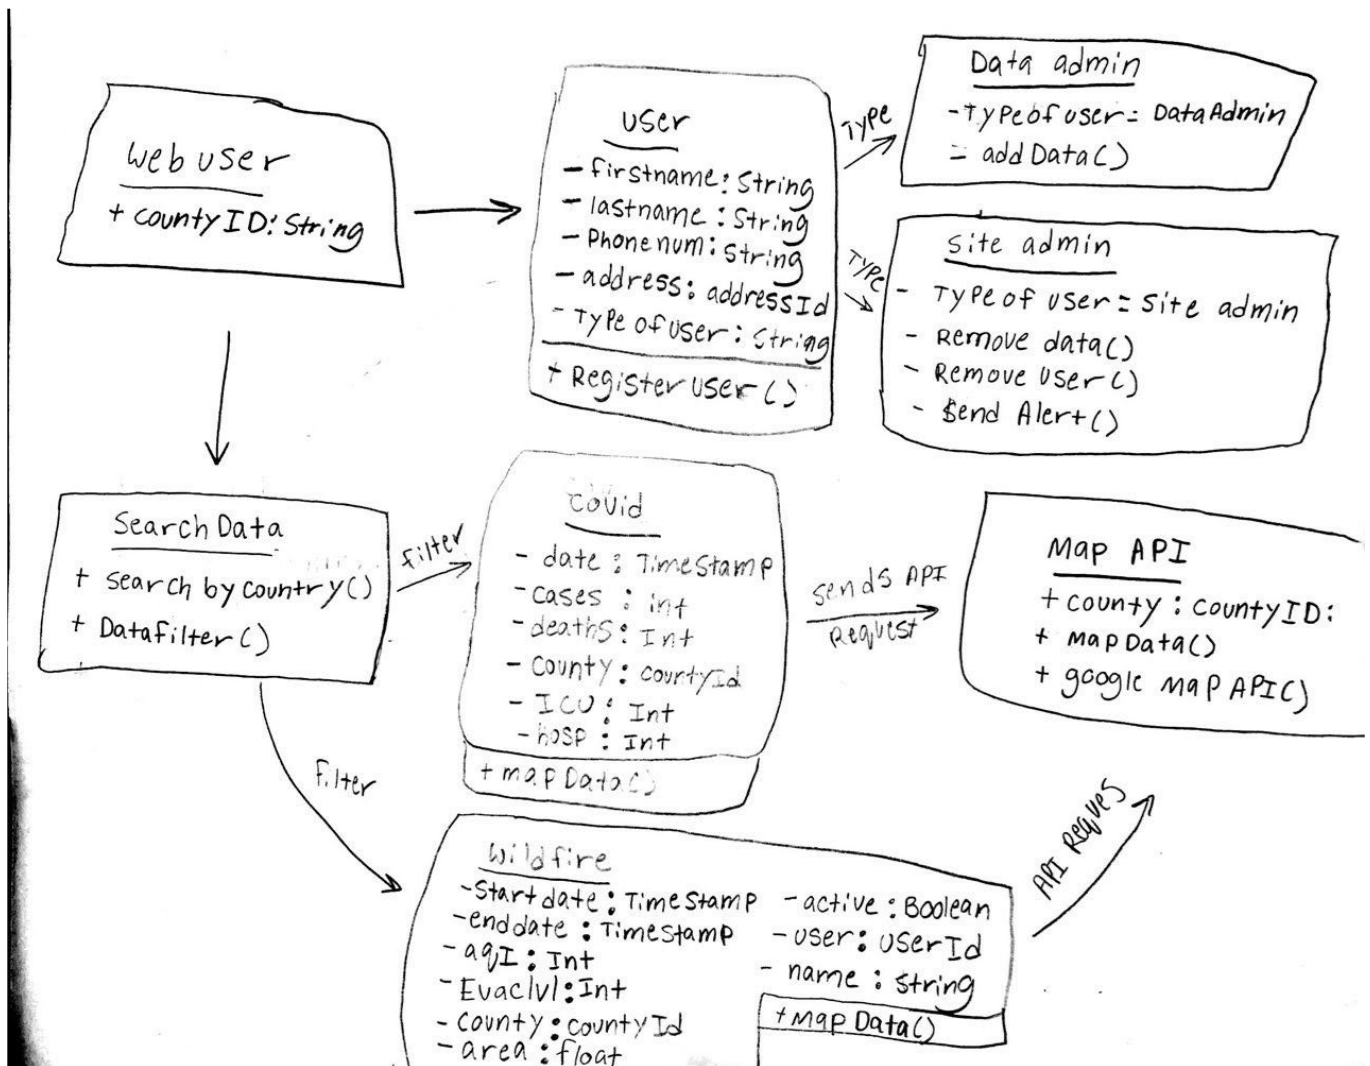 web user
+ countyID: String
user
- firstname: String
- lastname: String
- Phonenum: String
- address: addressId
- TypeofUser: String
+ Register User()
Type
Data admin
- Typeofuser = DataAdmin
= addData()
TYPE
Site admin
- Type of user = Site admin
- Remove data()
- Remove user()
- Send Alert()
Search Data
+ Search by country()
+ Datafilter()
Filter
Covid
- date: TimeStamp
- cases: int
- deaths: Int
- County: countyId
- ICU: Int
- hosp: Int
+ map Data()
Sends API
Request
Map API
+ county: countyID:
+ map Data()
+ google map API()
Filter
Wildfire
- Startdate: TimeStamp
- enddate: Timestamp
- aqI: Int
- Evaclvl: Int
- County: countyId
- area: float
- active: Boolean
- user: userId
- name: String
+ map Data()
API Reques